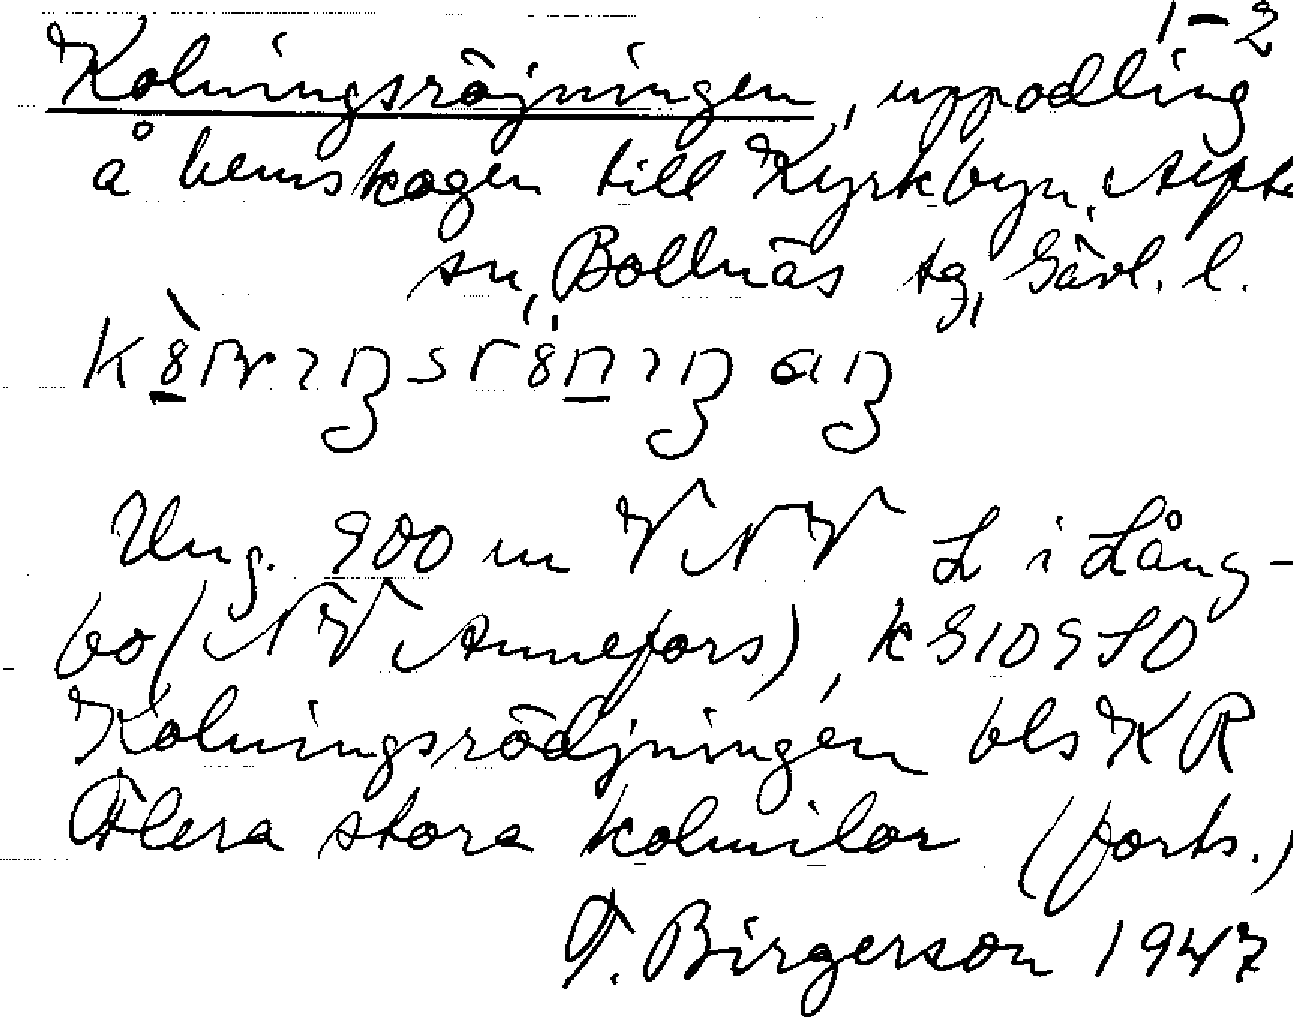 1-2
Kolningsröjningen, uppodling
å hemskogen till Kyrkbyn, Alfta
sn, Bollnäs tg, Gävl. l.
Ung. 900 m VNV L i Lång-
bo (NV Annefors), k 910950
Kolningsrödjningen bls KR
Flera stora kolmilor (forts.)
T. Birgerson 1947